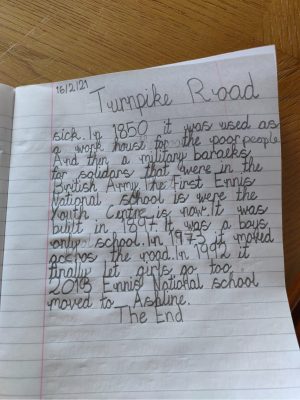 16/2/21
Turnpike Road
sick. In 1850 it was used as
a work house for the poor people
And then a military baracks
for soldars that were in the
British Army. The First Ennis
National school is were the
Youth Centre is now. It was
built in 1897. It was a boys
only school. In 1973 it moved
accros the road. In 1992 it
finally let girls go too.
2018 Ennis National school
moved to Ashline.
The End